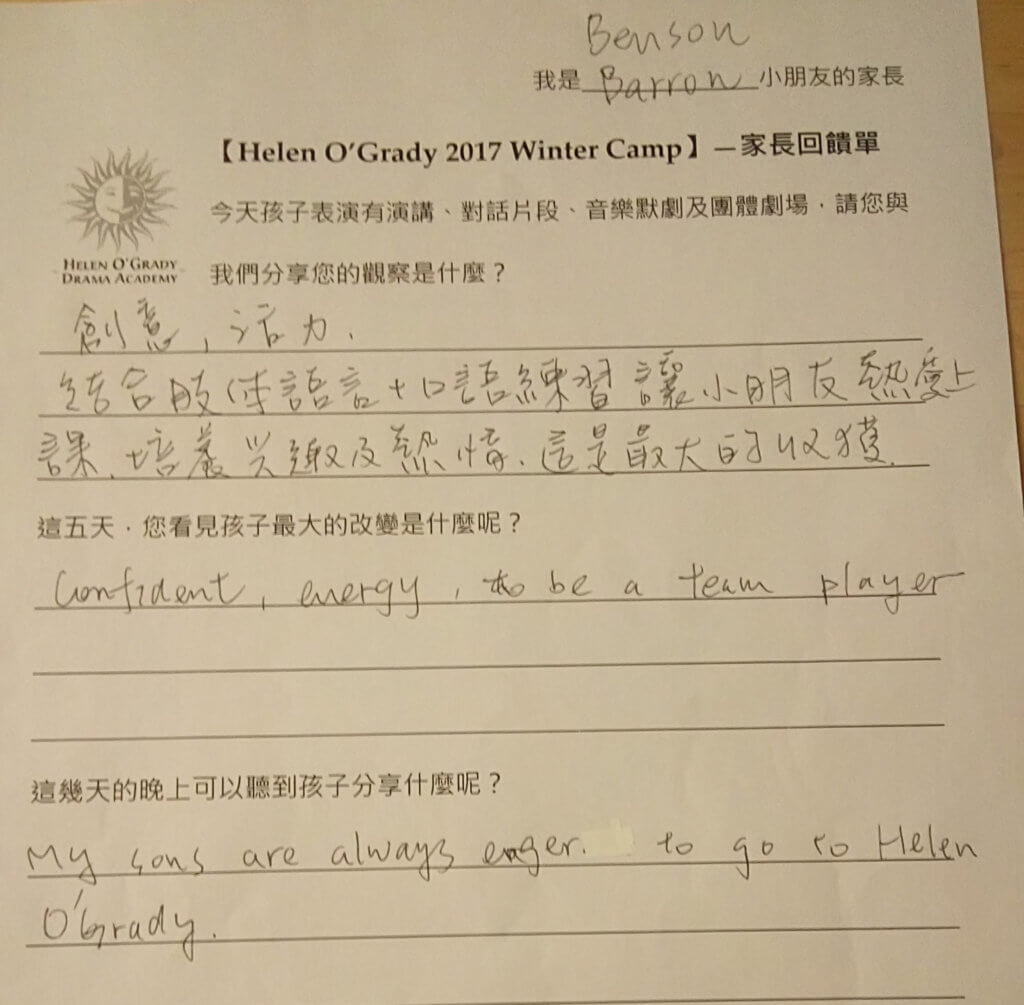 Benson
我是 Barron 小朋友的家長
【Helen O'Grady 2017 Winter Camp】—家長回饋單
今天孩子表演有演講、對話片段、音樂默劇及團體劇場，請您與
HELEN O'GRADY
DRAMA ACADEMY
我們分享您的觀察是什麼？
創意, 活力.
結合肢体語言+口語練習讓小朋友熱愛上
課、培養兴趣及熱情、這是最大的收獲.
這五天，您看見孩子最大的改變是什麼呢？
Confident, energy, to be a team player
這幾天的晚上可以聽到孩子分享什麼呢？
My sons are always eager. to go to Helen
O'Grady.